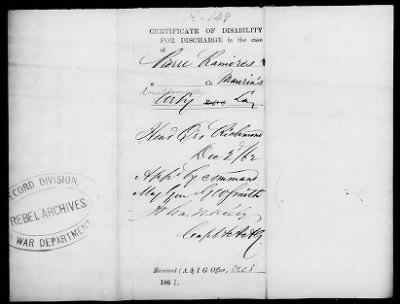 R-149
CERTIFICATE OF DISABILITY
FOR DISCHARGE in the case
of
Pierre Ramieres
a Co Maurin's
Donaldsonville
Arty Regt La
Head Qrs Richmond
Dec 2d/62
Appd by command
Maj Gen G W Smith
Capt & A A G
Received (A. & I. G. Office, Dec 8
1862.
RECORD DIVISION,
REBEL ARCHIVES
WAR DEPARTMENT